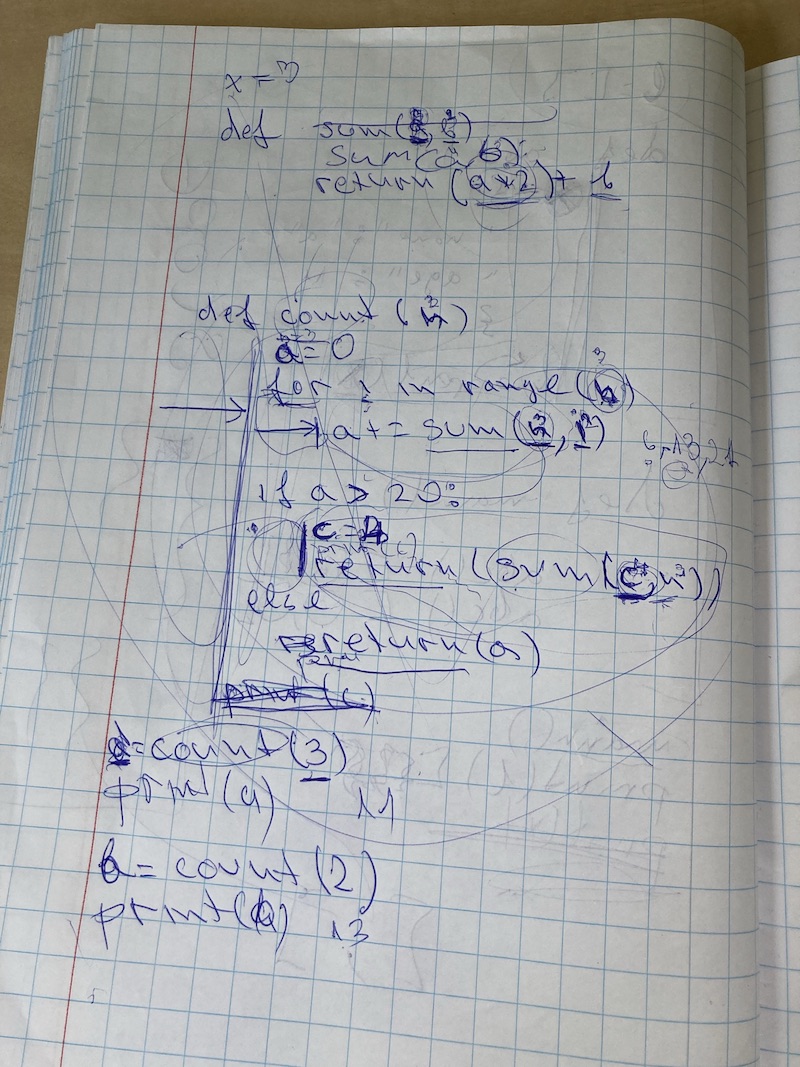 x = 3
def sum(
sum(a, b):
return (a*2) + b
def count (n)
a = 0
for i in range(n)
a += sum(n, i)
6, 13, 21
if a > 20:
c = 4
return (sum(c, n))
else
return(a)
print (c)
d = count(3)
print (d)
11
b = count (2)
print(b)
13